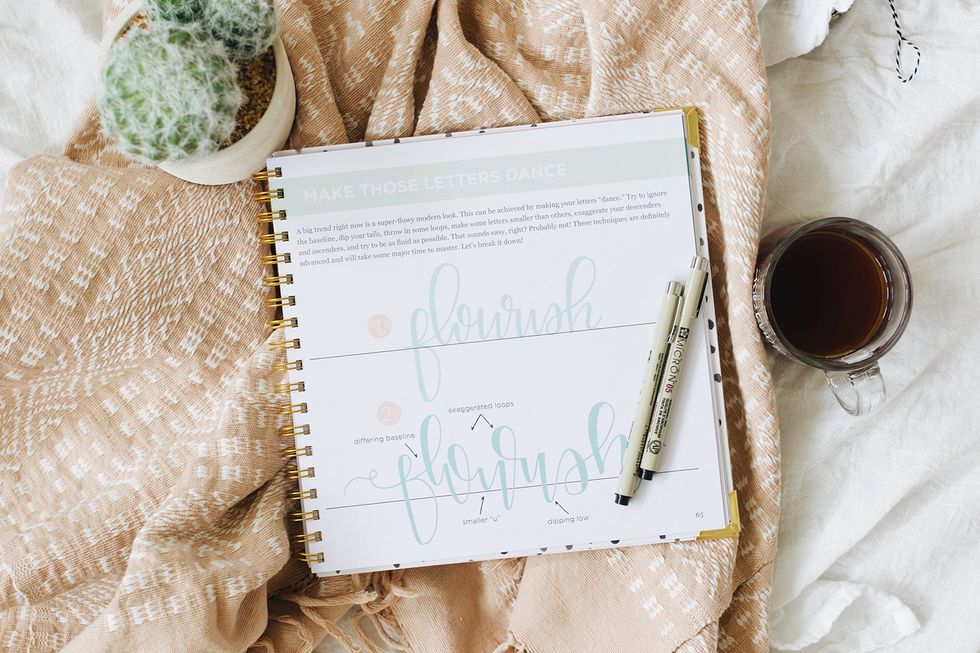 MAKE THOSE LETTERS DANCE
A big trend right now is a super-flowy modern look. This can be achieved by making your letters "dance." Try to ignore
the baseline, dip your tails, throw in some loops, make some letters smaller than others, exaggerate your descenders
and ascenders, and try to be as fluid as possible. That sounds easy, right? Probably not! These techniques are definitely
advanced and will take some major time to master. Let's break it down!
1
flourish
2
exaggerated loops
differing baseline
flourish
smaller "u"
dipping low
65
MICRON 05